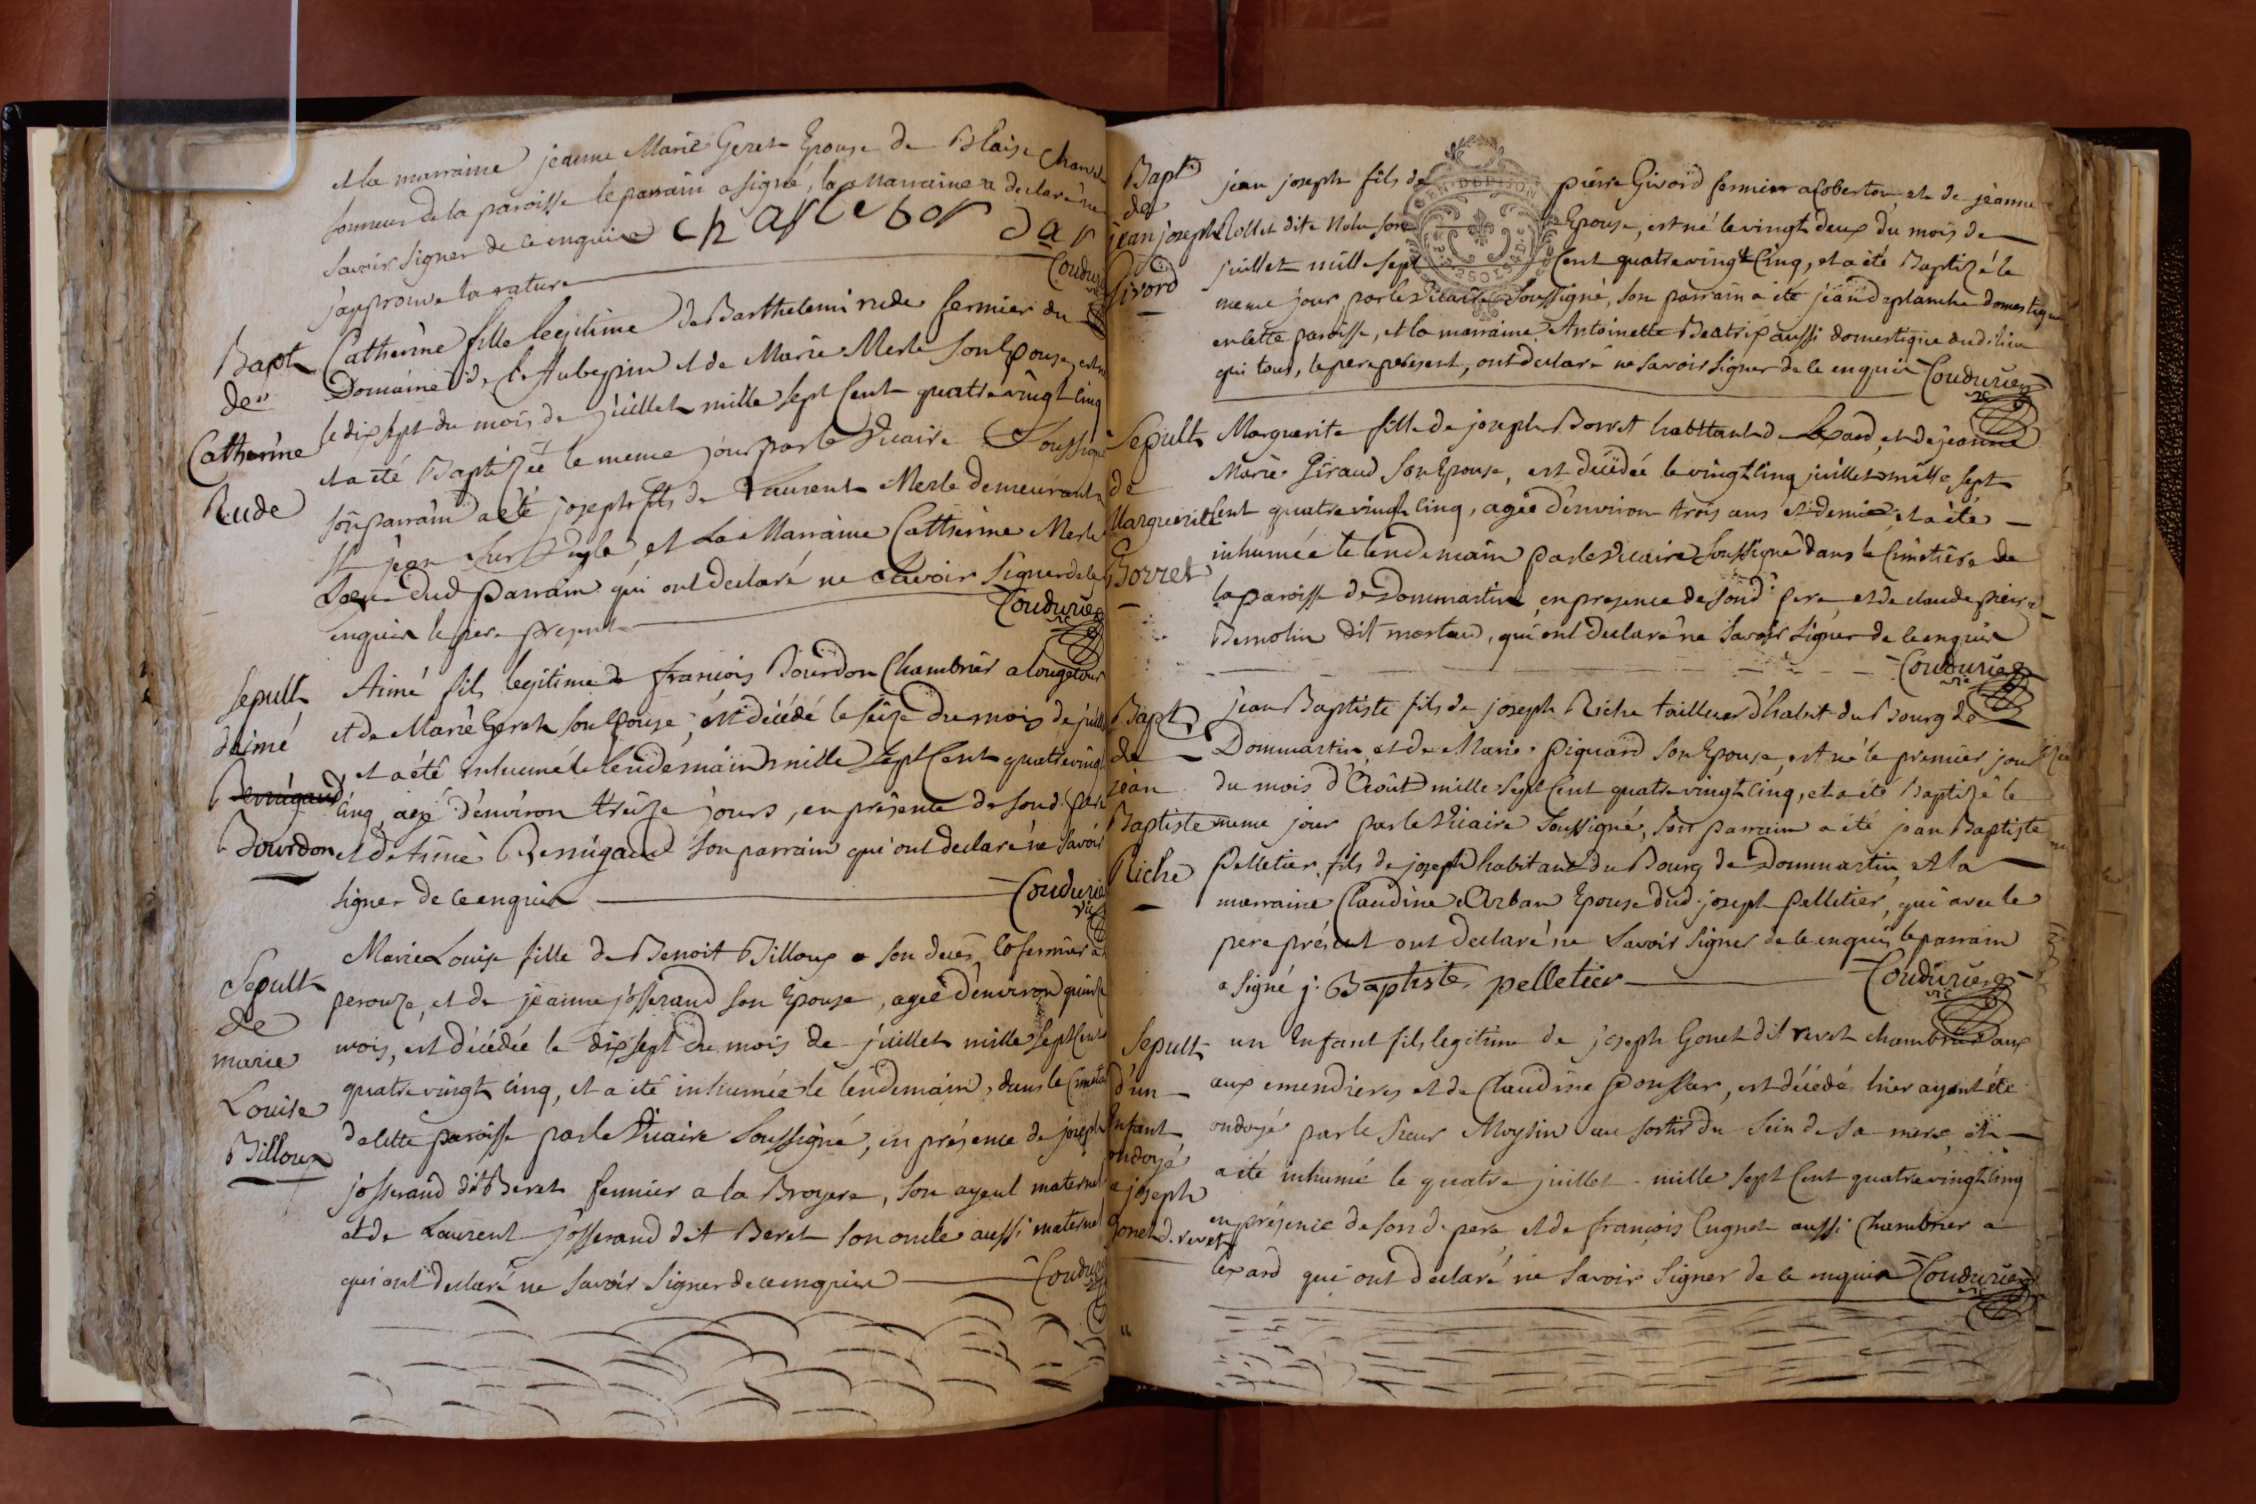 et la marraine jeanne Marie Geret Epouse de Blaise
sonneur de la paroisse le parrain a signé, la Marraine a declaré ne
savoir signer de ce enquise charle bor dar
j'approuve la rature
Coudurier
Bapt
de
Catherine
Rude
Catherine fille legitime de Barthelemi rude fermier du
Domaine de l'Aubepin et de Marie Merle son Epouse, est née
le dix sept du mois de juillet mille sept Cent quatre vingt cinq
et a été Baptizée le meme jour par le Vicaire Soussigné
son parrain a été joseph fils de Laurent Merle demeurant a
St jean sur Veyle, et La Marraine Catherine Merle
Soeur dud parrain qui ont declaré ne savoir signer de ce
enquis le pere present
Coudurier
vic
Sepult
d'aimé
Bernigaud
Bourdon
Aimé fils legitime de françois Bourdon Chambrier a
et de Marie Geret son Epouse, est décédé le seize du mois de juillet
et a été inhumé le lendemain mille sept Cent quatre vingt
cinq, agé d'environ treize jours, en présence de sond. pere
et d'Aimé Bernigaud son parrain qui ont declaré ne savoir
signer de ce enquis
Coudurier
vic
Sepult
de
marie
Louise
Billoux
Marie Louise fille de Benoit Billoux a son deces fermier a
perouze, et de jeanne josserand son Epouse, agée d'environ quinze
mois, est décédée le dix sept du mois de juillet mille sept Cent
quatre vingt cinq, et a été inhumée le lendemain, dans le Cimetiere
de cette paroisse par le Vicaire Soussigné, en présence de joseph
josserand dit Beret fermier a la Broyere, son ayeul maternel
et de Laurent josserand dit Beret son oncle aussi maternel
qui ont declaré ne savoir signer de ce enquis
Coudurier
Bapt
de
jean joseph
Givord
jean joseph fils de pierre Givord fermier a Coberton, et de jeanne
Rollet dite Nolu son Epouse, est né le vingt deux du mois de
juillet mille sept Cent quatre vingt Cinq, et a été Baptizé le
meme jour par le Vicaire Soussigné, son parrain a été jean deplanche domestique
en cette paroisse, et la marraine Antoinette Beatrix aussi domestique audit lieu
qui tous, le pere present, ont declaré ne savoir signer de ce enquis Coudurier
vic
Sepult
de
Marguerite
Borret
Marguerite fille de joseph Borret habittant de Lexard, et de jeanne
Marie Giraud son Epouse, est décédée le vingt cinq juillet mille sept
Cent quatre vingt Cinq, agée d'environ trois ans et demie, et a été
inhumée le lendemain par le Vicaire Soussigné dans le Cimetiere de
la paroisse de Dommartin en presence de sond. pere et de claude pierre
Demolin dit mortau, qui ont declaré ne savoir signer de ce enquis
Coudurier
vic
Bapt
de
jean
Baptiste
Riche
jean Baptiste fils de joseph Riche tailleur d'habit du Bourg de
Dommartin et de Marie Piquard son Epouse, est né le premier jour
du mois d'Août mille sept Cent quatre vingt cinq, et a été Baptizé le
meme jour par le Vicaire Soussigné, son parrain a été jean Baptiste
Pelletier fils de joseph habitant du Bourg de Dommartin, et la
marraine Claudine Arban Epouse dud. joseph Pelletier, qui avec le
pere présent ont declaré ne savoir signer de ce enquis, le parrain
a signé j. Baptiste pelletier
Coudurier
vic
Sepult
d'un
Enfant
ondoyé
a joseph
Gonet d. revet
un Enfant fils legitime de joseph Gonet dit revet chambrier aux
aux emendieres et de Claudine poussar, est décédé hier ayant été
ondoyé par le sieur Moysin au sortir du sein de sa mere, et
a été inhumé le quatre juillet mille sept Cent quatre vingt cinq
en présence de sond. pere et de françois Cugnet aussi Chambrier a
lexard qui ont declaré ne savoir signer de ce enquis Coudurier
vic